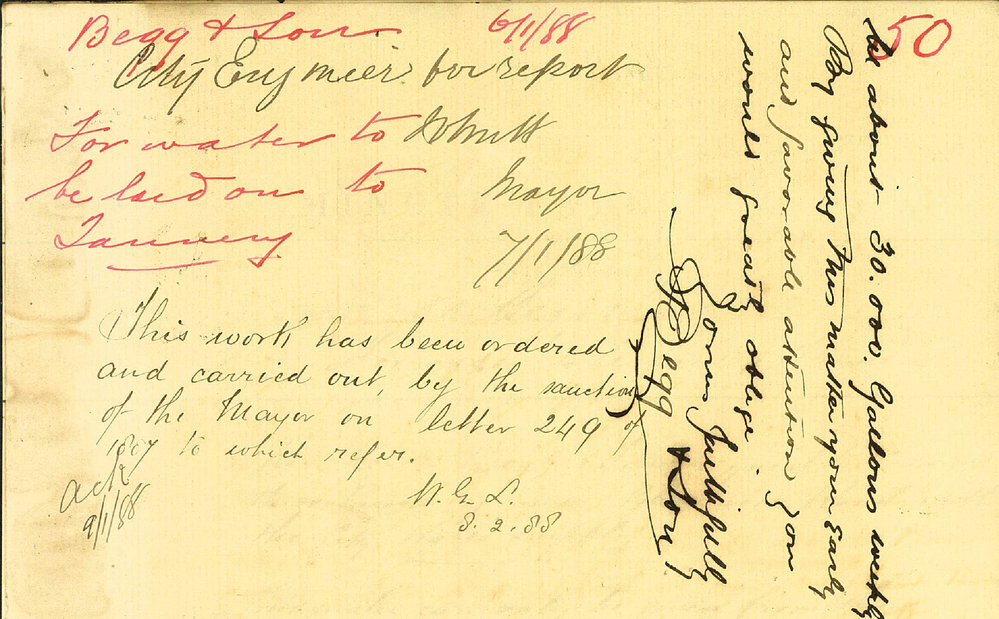 Begg & Son 6/1/88
50
City Engineer for report
For water to
be laid on to
Tannery
Mayor
7/1/88
This work has been ordered
and carried out, by the sanction
of the Mayor on letter 249 of
1887 to which refer.
W. G. L.
8.2.88
ack
9/1/88
be about 30.000. Gallons weekly
By giving this matter your Early
and favorable attention you
would greatly oblige.
Yours Faithfully
Begg & Son